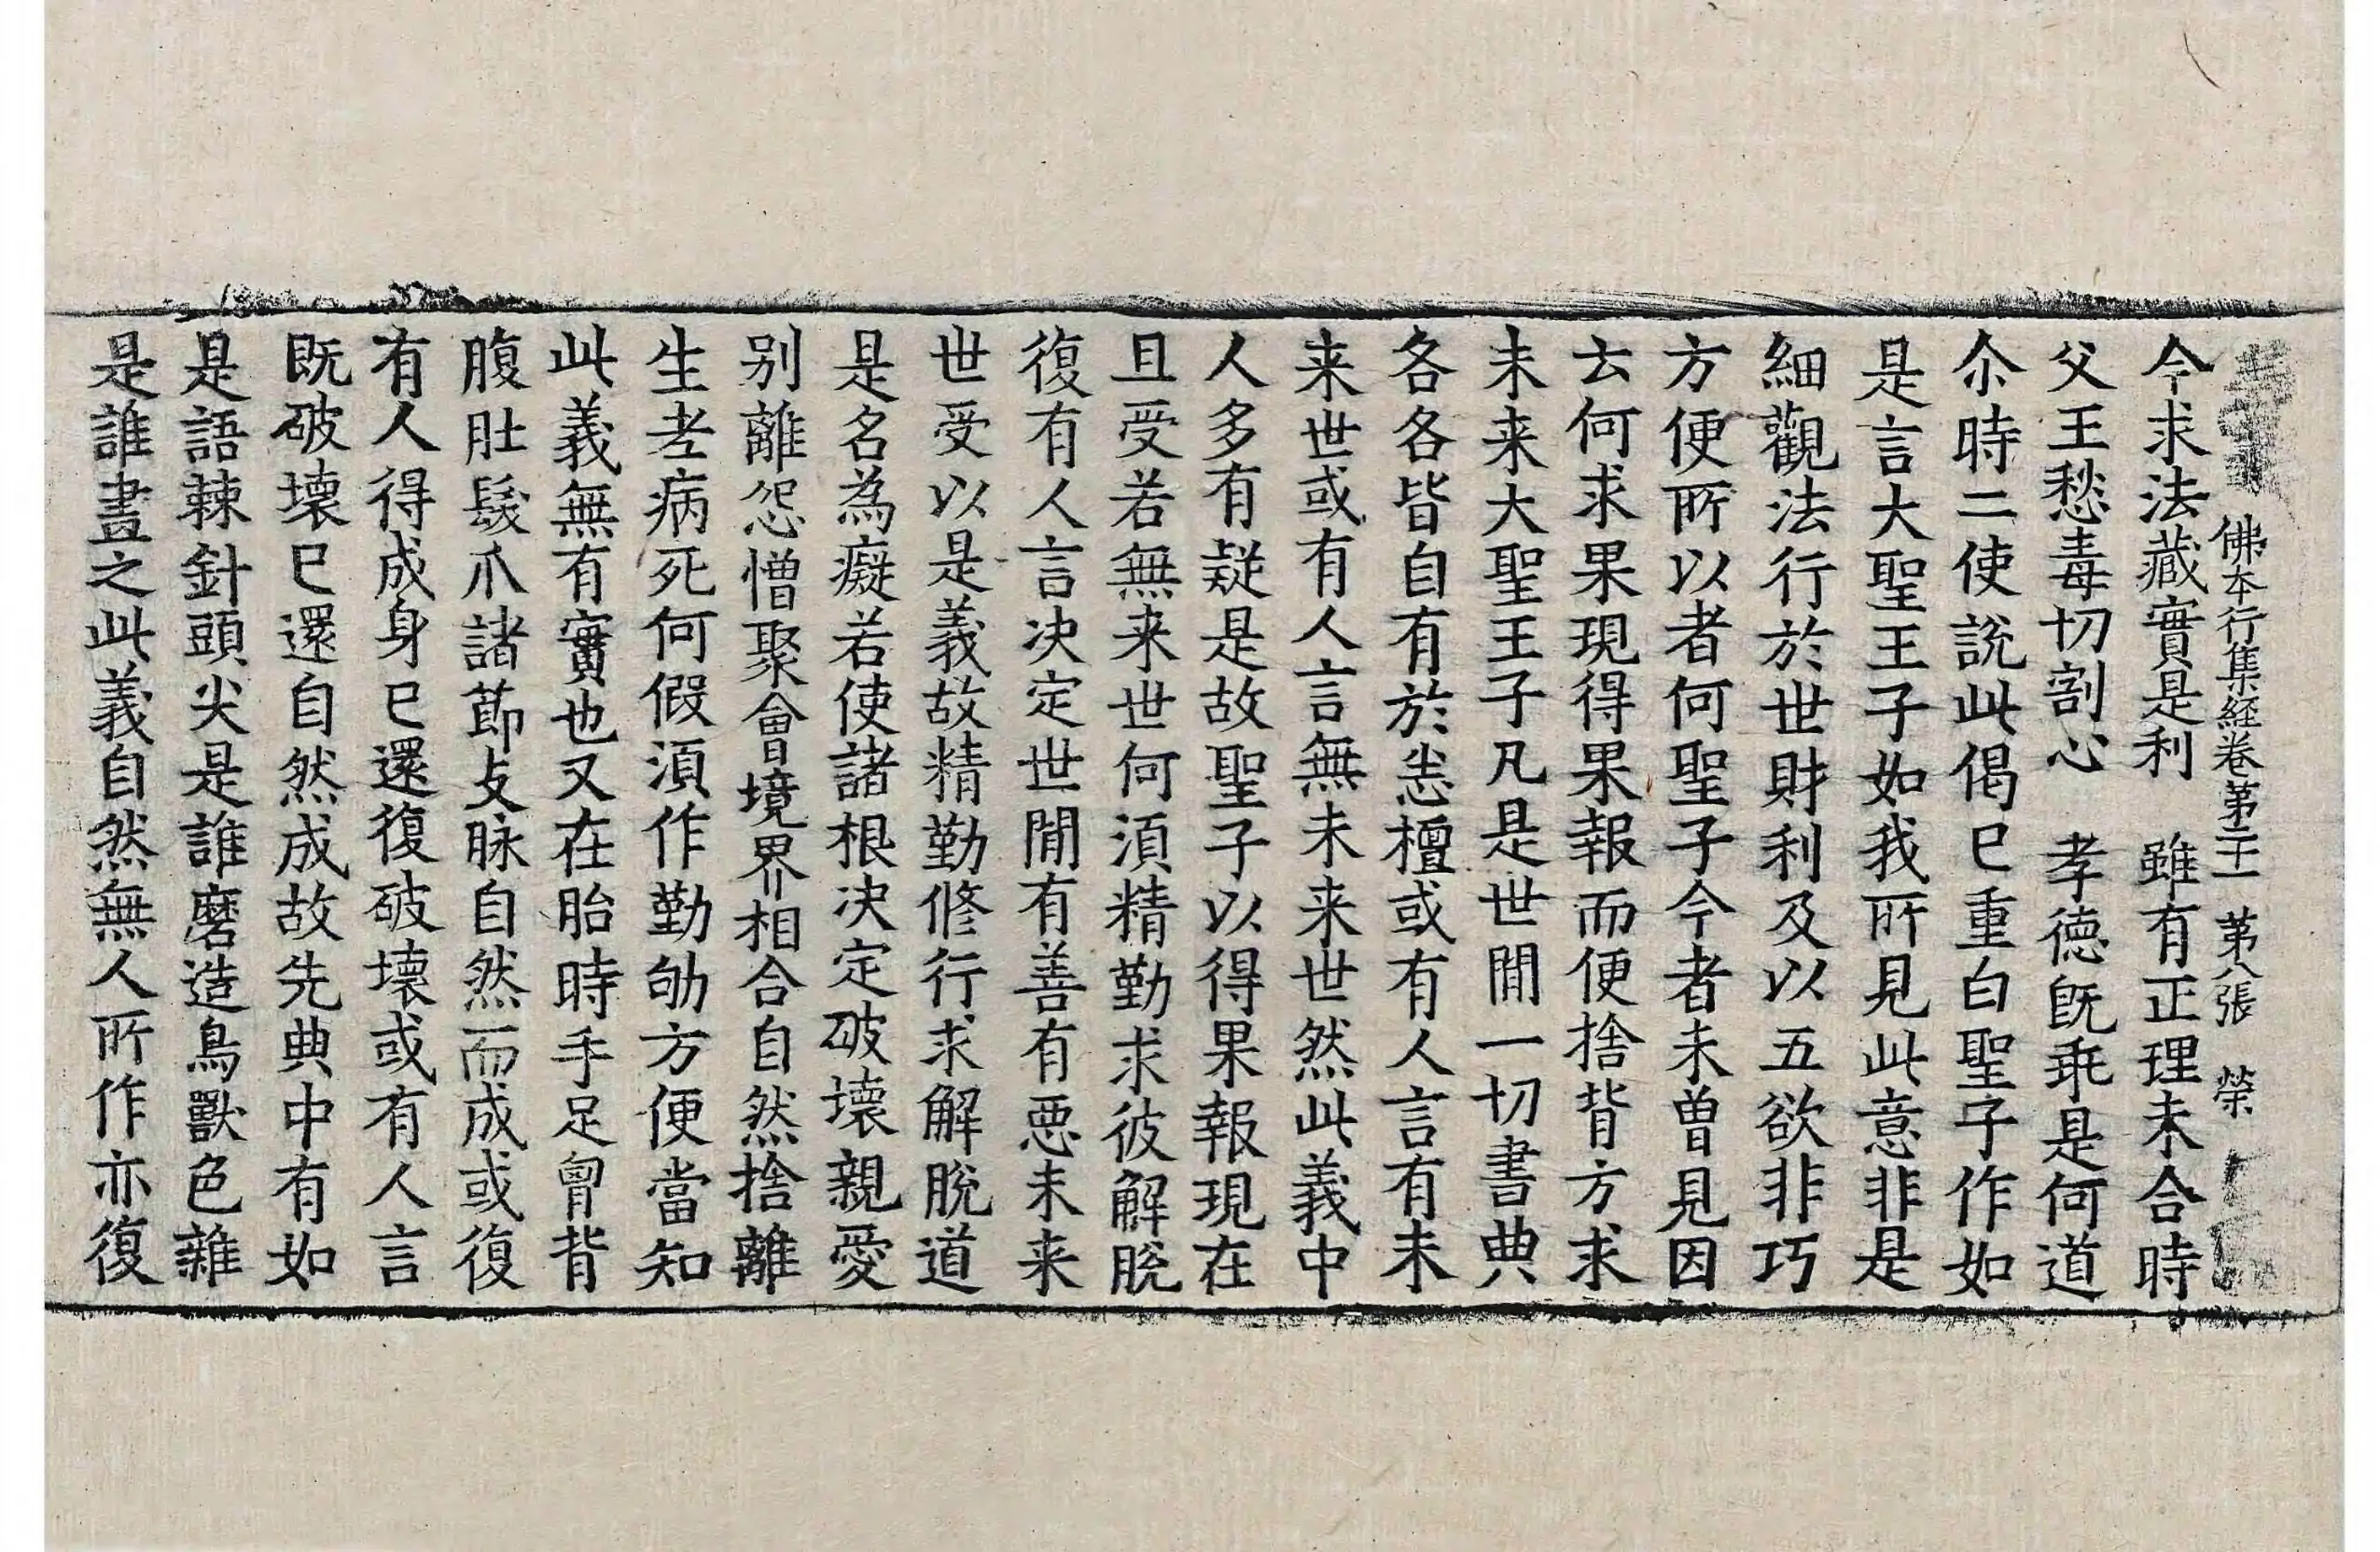 佛本行集經卷第二十一 第八張 榮
今求法藏實是利 雖有正理未合時
父王愁毒切割心 孝德旣乖是何道
尒時二使說此偈已重白聖子作如
是言大聖王子如我所見此意非是
細觀法行於世財利及以五欲非巧
方便所以者何聖子今者未曾見因
云何求果現得果報而便捨背方求
未来大聖王子凡是世間一切書典
各各皆自有於恙檀或有人言有未
来世或有人言無未来世然此義中
人多有疑是故聖子以得果報現在
且受若無来世何湏精勤求彼解脫
復有人言決定世間有善有惡未来
世受以是義故精勤修行求解脫道
是名為癡若使諸根決定破壞親愛
别離怨憎聚會境界相合自然捨離
生老病死何假湏作勤劬方便當知
此義無有實也又在胎時手足胷背
腹肚髮爪諸節支脉自然而成或復
有人得成身已還復破壞或有人言
既破壞已還自然成故先典中有如
是語棘針頭尖是誰磨造鳥獸色雜
是誰畫之此義自然無人所作亦復